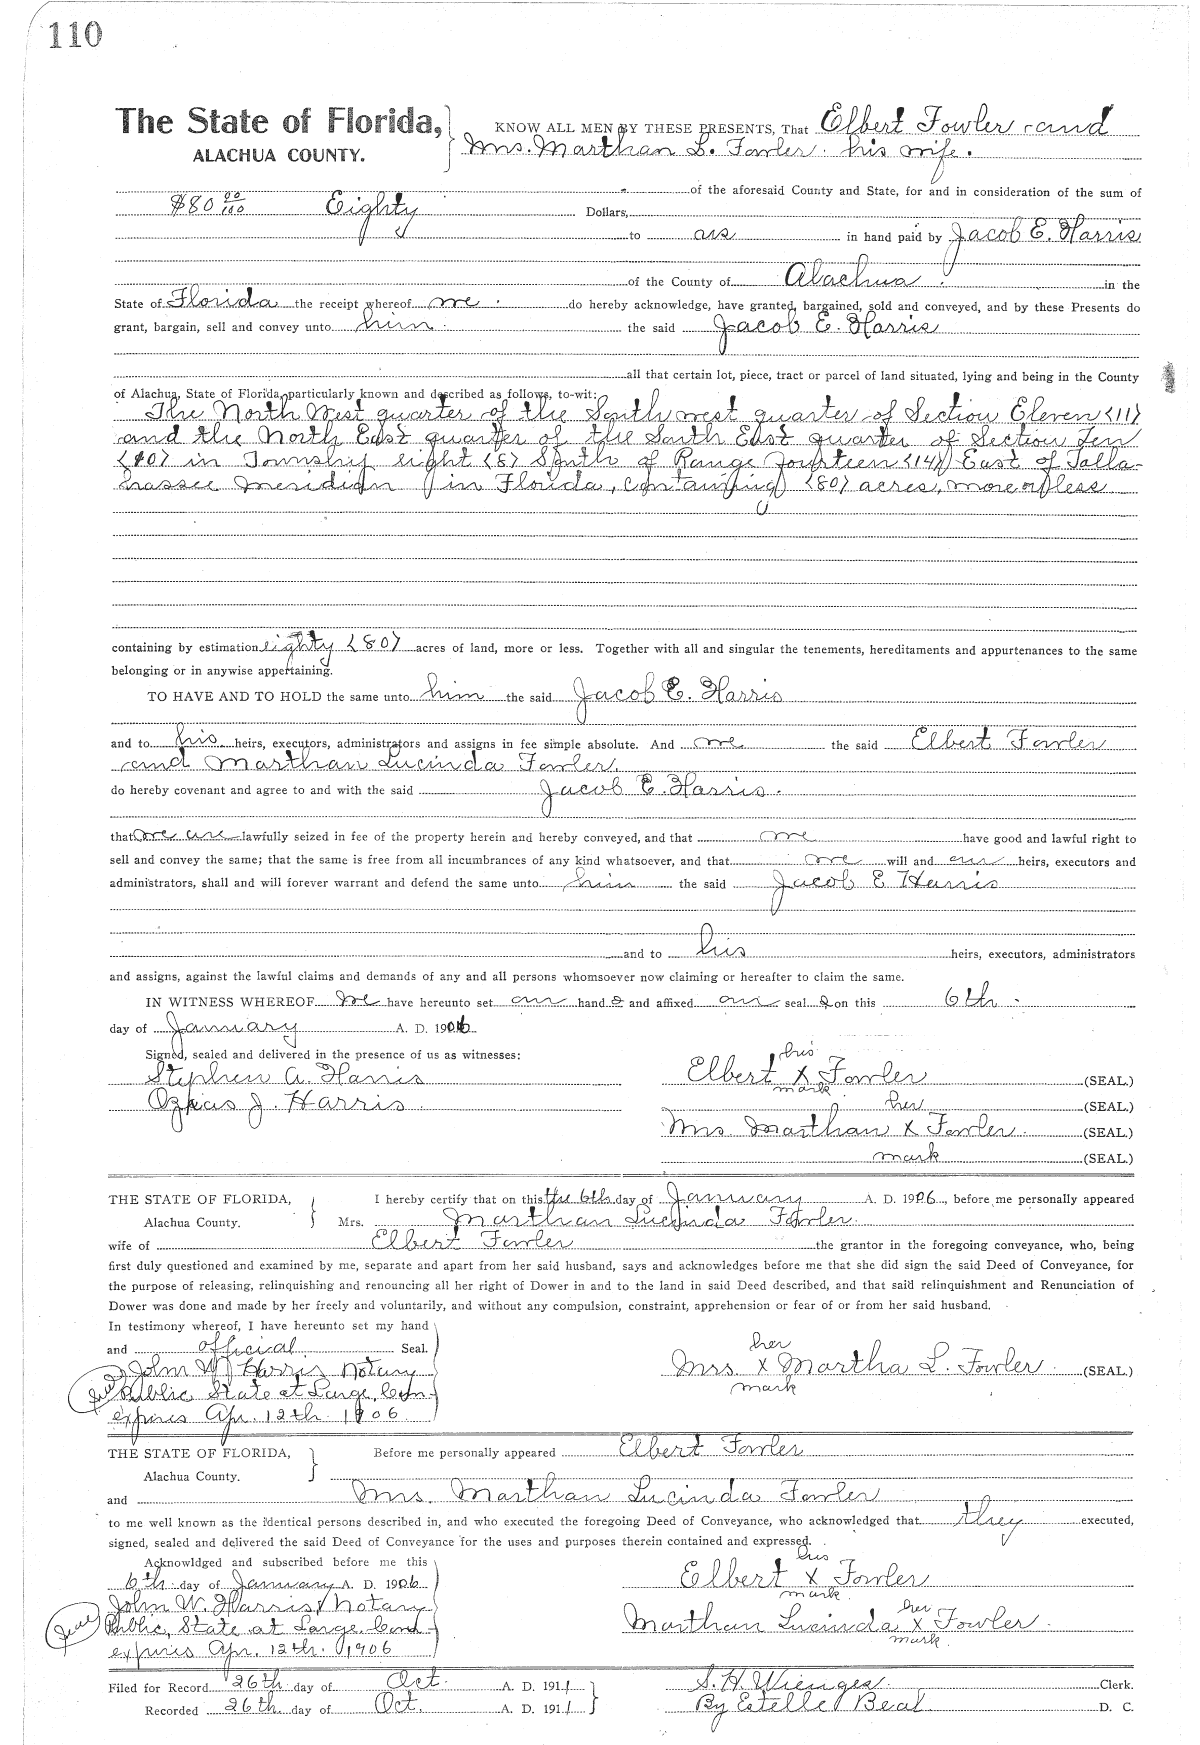 110
The State of Florida, KNOW ALL MEN BY THESE PRESENTS, That Elbert Fowler and
ALACHUA COUNTY. Mrs. Marthan L. Fowler his wife.
of the aforesaid County and State, for and in consideration of the sum of
$80 00/100 Eighty Dollars,
to us in hand paid by Jacob E. Harris
of the County of Alachua. in the
State of Florida the receipt whereof we do hereby acknowledge, have granted, bargained, sold and conveyed, and by these Presents do
grant, bargain, sell and convey unto him the said Jacob E. Harris
all that certain lot, piece, tract or parcel of land situated, lying and being in the County
of Alachua, State of Florida, particularly known and described as follows, to-wit:
The North West quarter of the South west quarter of Section Eleven (11)
and the North East quarter of the South East quarter of Section Ten
(10) in Township eight (8) South of Range fourteen (14) East of Talla-
hassee Meridian in Florida, containing (80) acres, more or less
containing by estimation eighty (80) acres of land, more or less. Together with all and singular the tenements, hereditaments and appurtenances to the same
belonging or in anywise appertaining.
TO HAVE AND TO HOLD the same unto him the said Jacob E. Harris
and to his heirs, executors, administrators and assigns in fee simple absolute. And we the said Elbert Fowler
and Marthan Lucinda Fowler.
do hereby covenant and agree to and with the said Jacob E. Harris.
that we are lawfully seized in fee of the property herein and hereby conveyed, and that we have good and lawful right to
sell and convey the same; that the same is free from all incumbrances of any kind whatsoever, and that we will and our heirs, executors and
administrators, shall and will forever warrant and defend the same unto him the said Jacob E Harris
and to his heirs, executors, administrators
and assigns, against the lawful claims and demands of any and all persons whomsoever now claiming or hereafter to claim the same.
IN WITNESS WHEREOF we have hereunto set our hand s and affixed our seal s on this 6th.
day of January A. D. 1906
Signed, sealed and delivered in the presence of us as witnesses: his
Stephen A. Harris Elbert X Fowler (SEAL.)
mark
J. Harris. her (SEAL.)
Mrs Marthan X Fowler. (SEAL.)
mark (SEAL.)
THE STATE OF FLORIDA, I hereby certify that on this the 6th day of January A. D. 1906, before me personally appeared
Alachua County. Mrs. Marthan Lucinda Fowler.
wife of Elbert Fowler the grantor in the foregoing conveyance, who, being
first duly questioned and examined by me, separate and apart from her said husband, says and acknowledges before me that she did sign the said Deed of Conveyance, for
the purpose of releasing, relinquishing and renouncing all her right of Dower in and to the land in said Deed described, and that said relinquishment and Renunciation of
Dower was done and made by her freely and voluntarily, and without any compulsion, constraint, apprehension or fear of or from her said husband.
In testimony whereof, I have hereunto set my hand
and official Seal. her
John W Harris Notary Mrs. X Martha L. Fowler. (SEAL)
Seal Public State at Large, Com mark
expires Apr. 12th. 1906
THE STATE OF FLORIDA, Before me personally appeared Elbert Fowler
Alachua County.
and Mrs. Marthan Lucinda Fowler
to me well known as the identical persons described in, and who executed the foregoing Deed of Conveyance, who acknowledged that they executed,
signed, sealed and delivered the said Deed of Conveyance for the uses and purposes therein contained and expressed.
Acknowldged and subscribed before me this his
6th day of January A. D. 1906 Elbert X Fowler
mark
John W. Harris Notary her
Seal Public, State at Large Com Marthan Lucinda X Fowler.
expires Apr. 12th. 1906 mark
Filed for Record 26th day of Oct. A. D. 1911 S. H. Wienges Clerk.
Recorded 26th day of Oct. A. D. 1911 By Estelle Beal D. C.